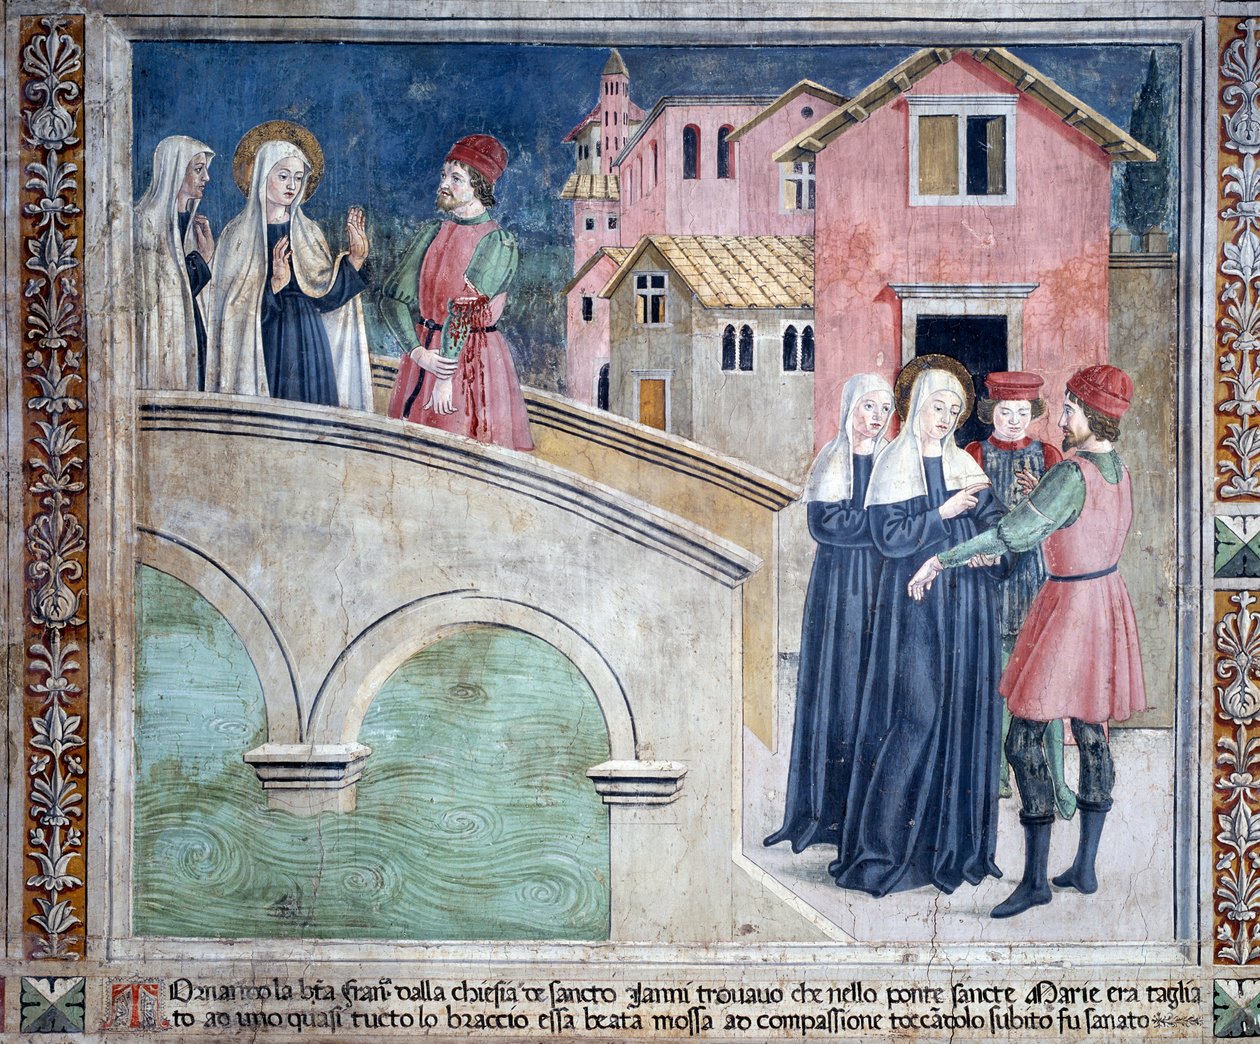 TOrnando la bta Franca dalla chiesia de sancto Janni trouauo che nello ponte sancte Marie era taglia
to ad uno quasi tucto lo braccio essa beata mossa ad compassione toccādolo subito fu sanato